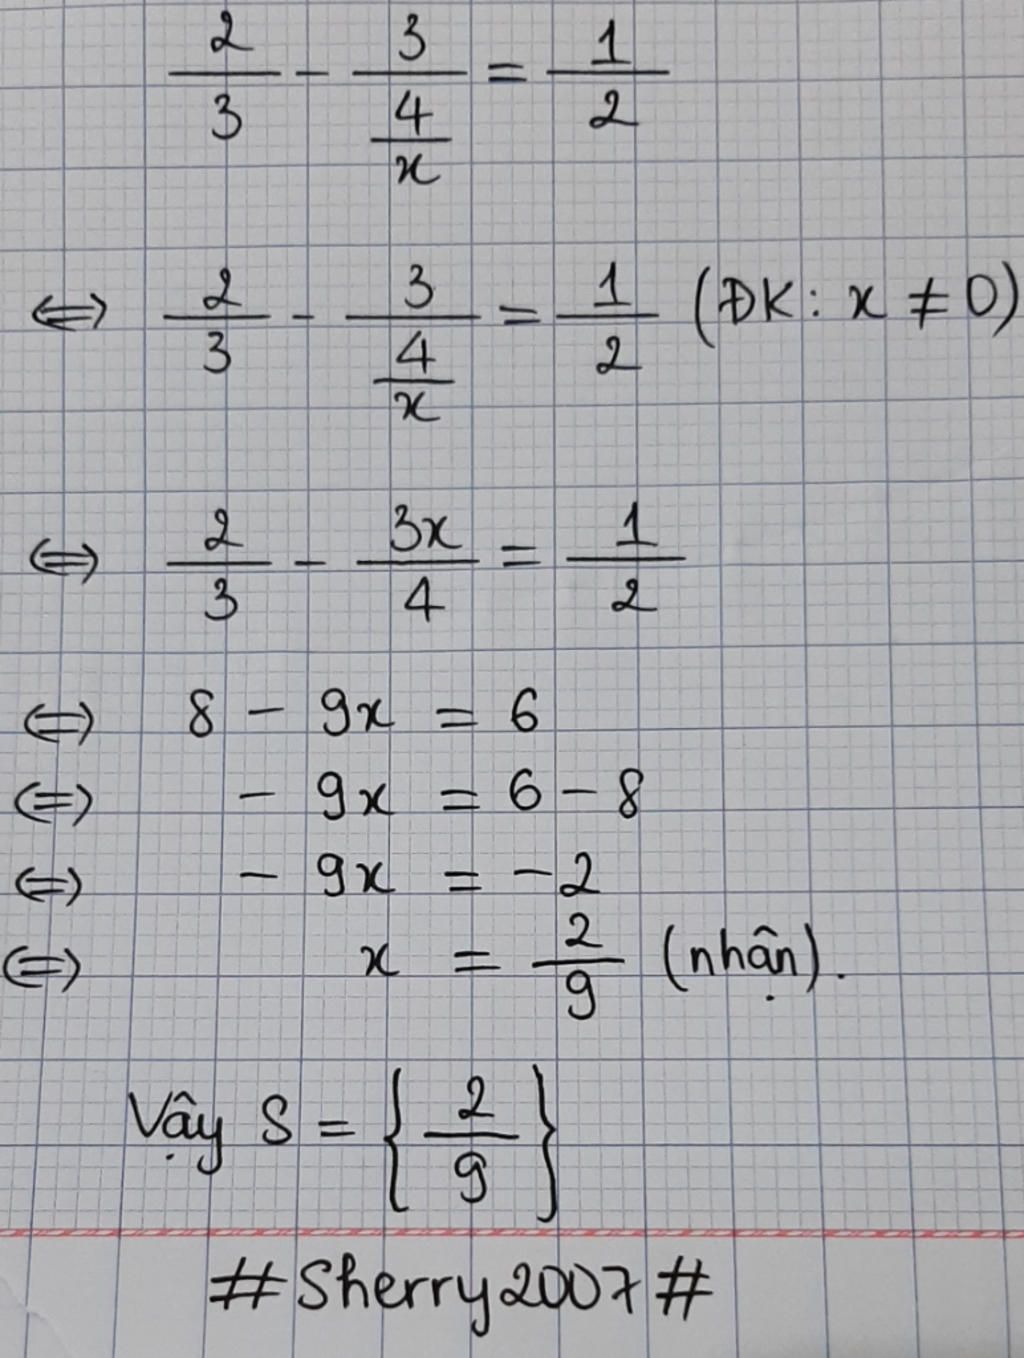 2/3 - 3/(4/x) = 1/2
⇔ 2/3 - 3/(4/x) = 1/2 (ĐK: x ≠ 0)
⇔ 2/3 - 3x/4 = 1/2
⇔ 8 - 9x = 6
⇔ - 9x = 6 - 8
⇔ - 9x = -2
⇔ x = 2/9 (nhận).
Vậy S = {2/9}
#Sherry2007#